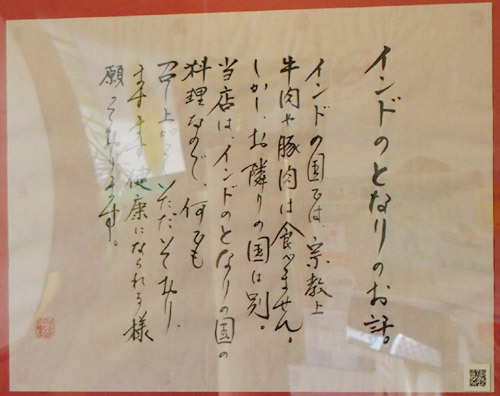 インドのとなりのお話。
インドの国では、宗教上
牛肉や豚肉は食べません。
しかし、お隣りの国は別。
当店は、インドのとなりの国の
料理なので、何でも
召し上がっていただいており、
ますます健康になられる様
願っております。